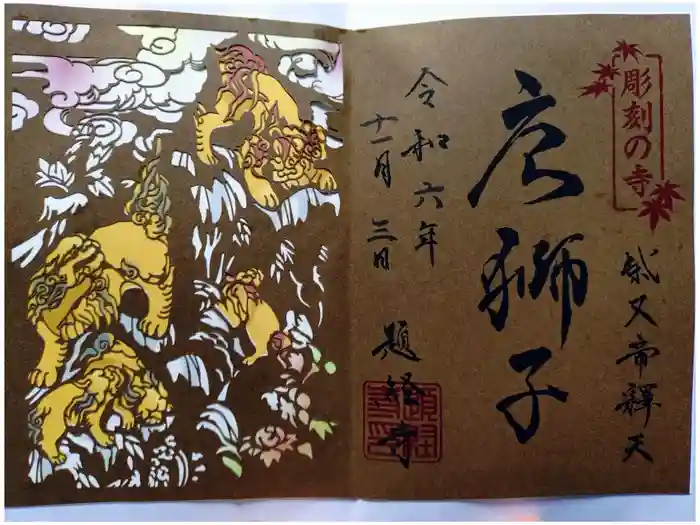 彫刻の寺
柴又帝釋天
唐獅子
令和六年
十一月三日
題経寺